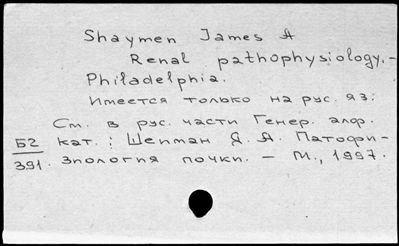 Shaymen James A
Renal pathophysiology.-
Philadelphia.
Имеется только на рус. яз:
См. в рус. части Генер. алф.
Б2 кат.: Шепман Я. А. Патофи-
391. зиология почки. - М., 1997.